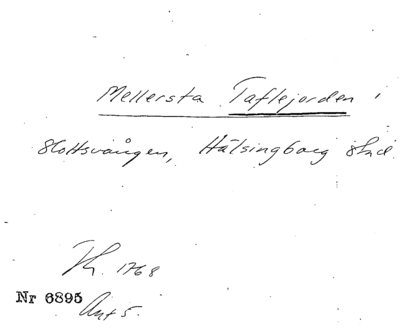 Mellersta Taflejorden i
Slottsvången, Hälsingborg stad
Kh. 1768
Nr 6895
Ant 5.